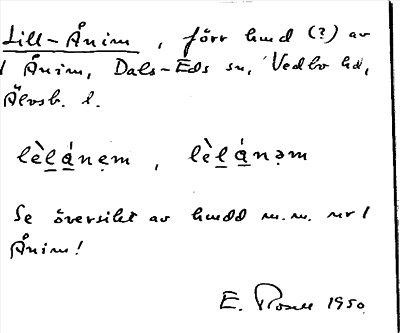 Lill-Ånim, förr hmd (?) av
1 Ånim, Dals-Eds sn, Vedbo hd,
Älvsb. l.
lèlánẹm, lèlánəm
Se översikt av hmdd m.m. nr 1
Ånim!
E. Rosell 1950.